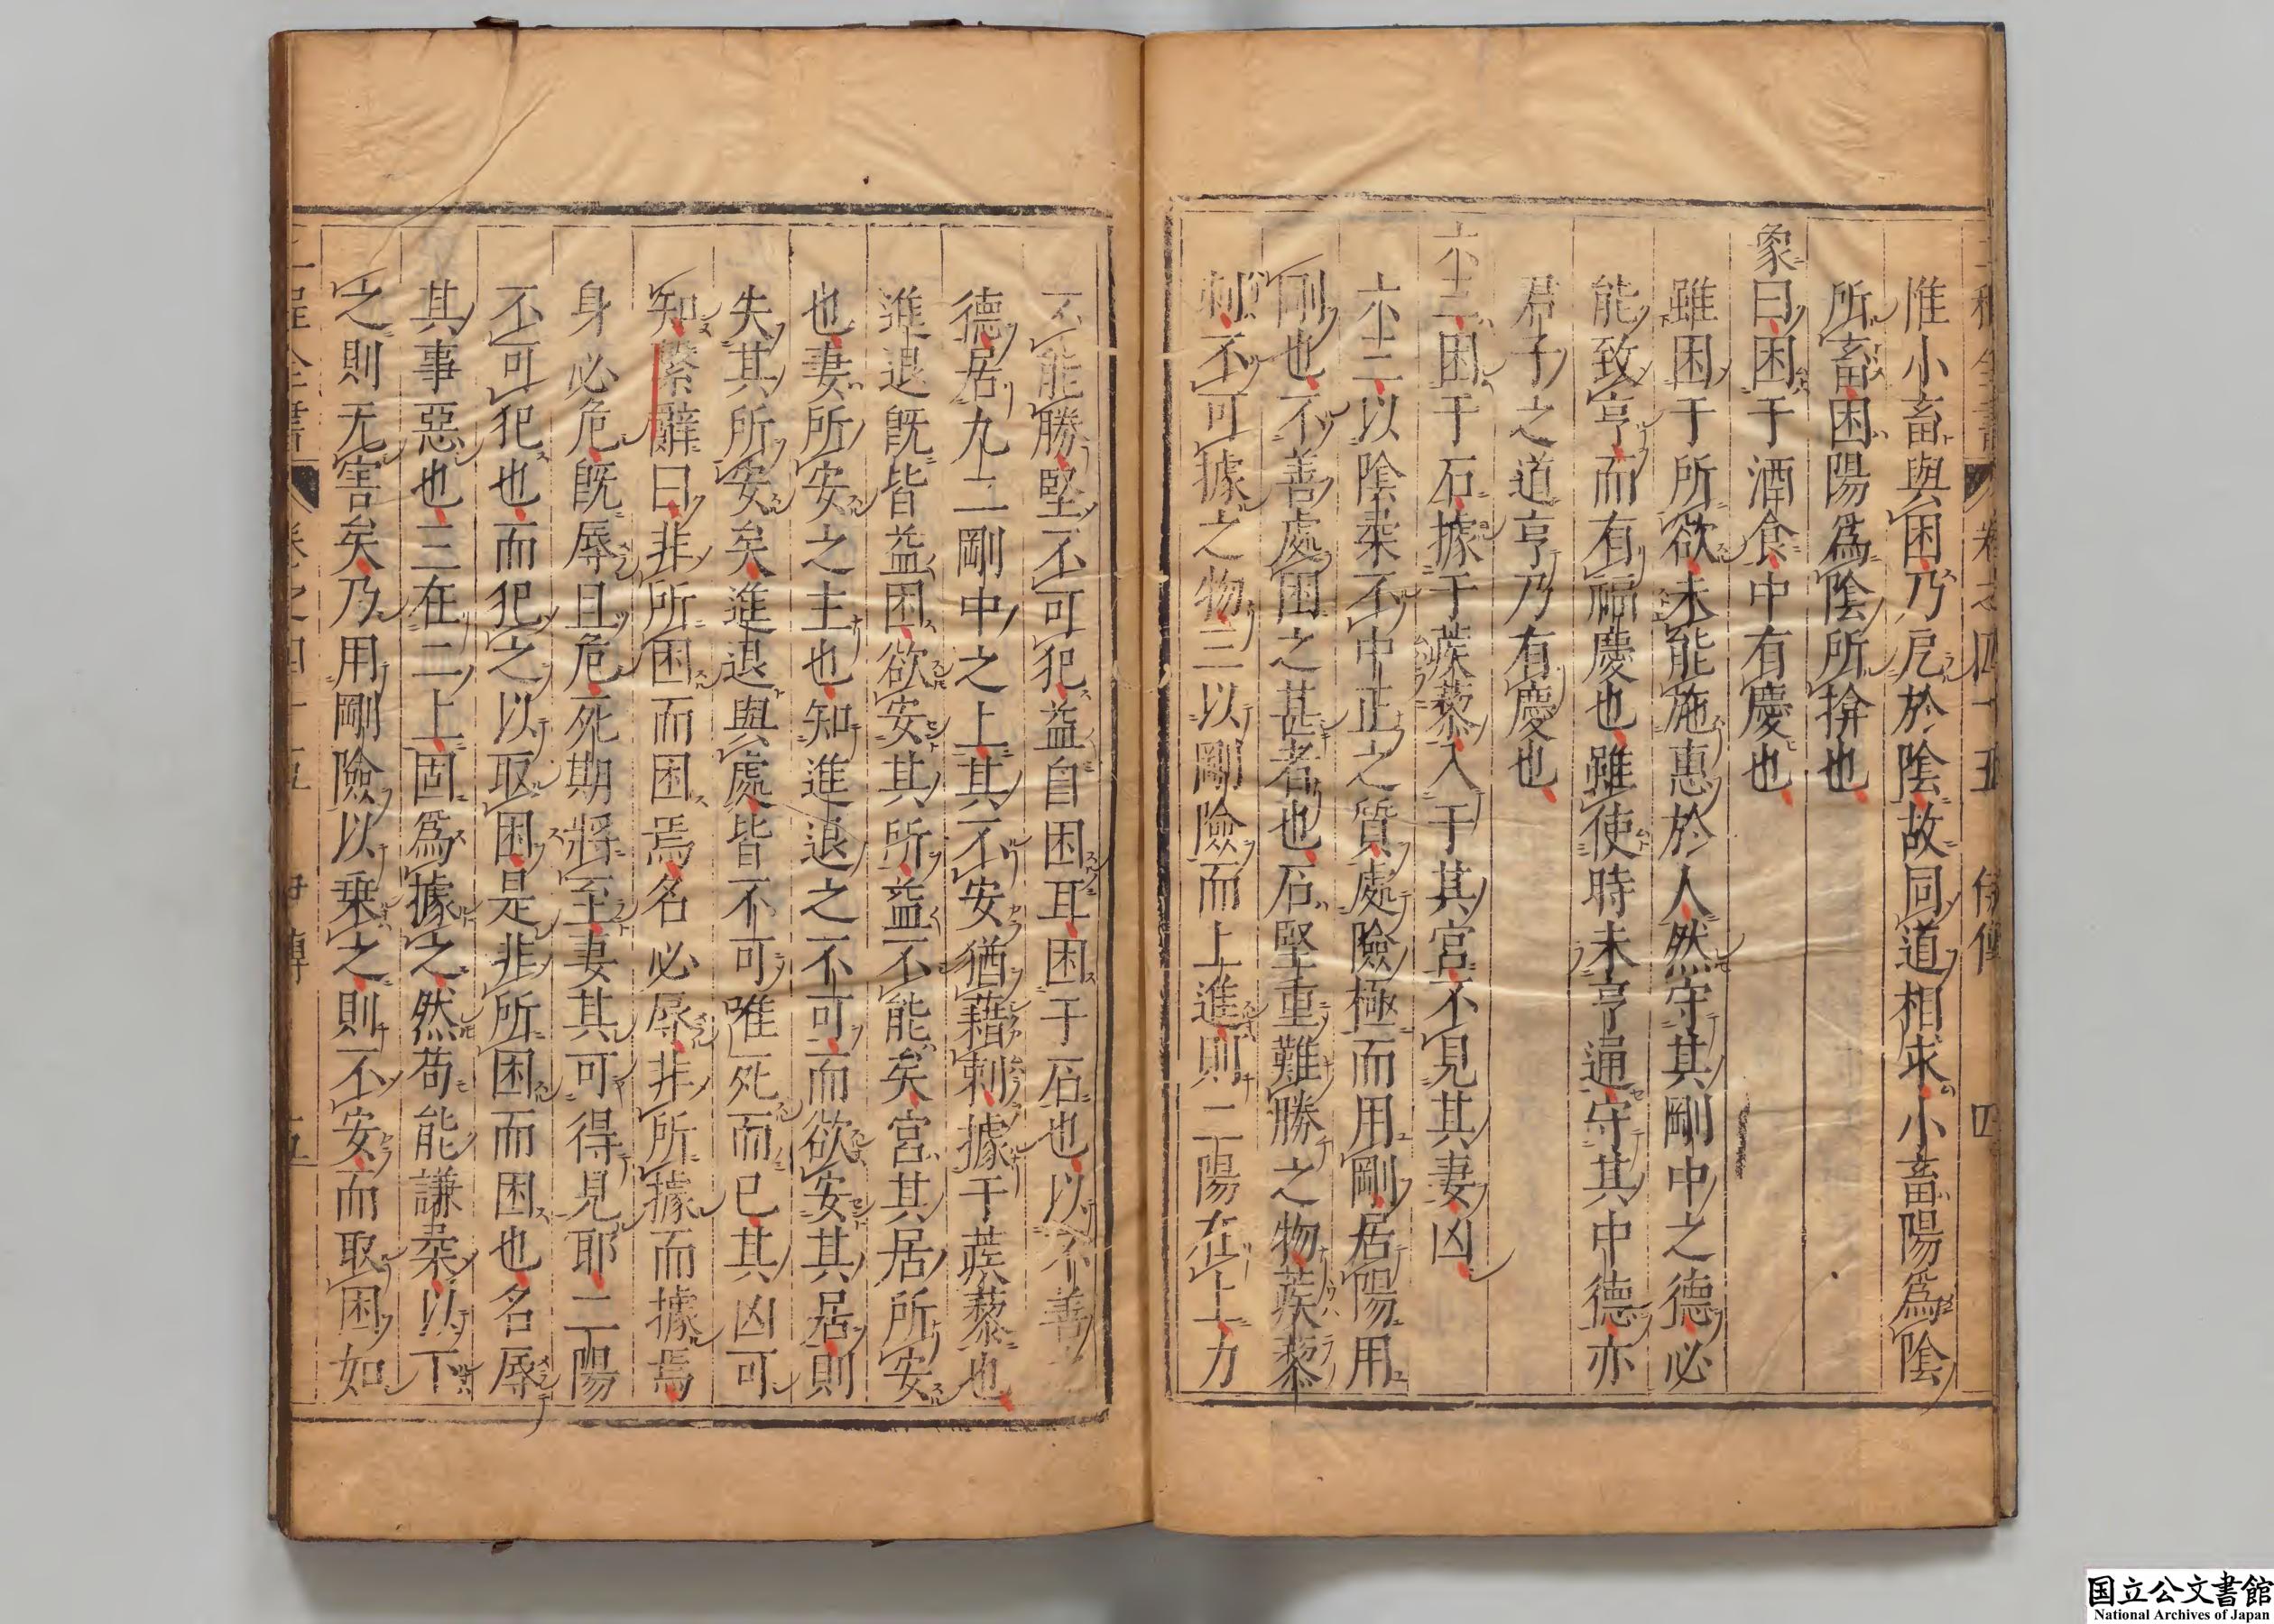 二程全書 卷之四十五 伊傳 四
惟小畜與困乃戹於陰故同道相求小畜陽爲陰
所畜困陽爲陰所揜也
象曰困于酒食中有慶也
雖困于所欲未能施惠於人然守其剛中之德必
能致亨而有福慶也雖使時未亨通守其中德亦
君子之道亨乃有慶也
六三困于石據于蒺藜入于其宮不見其妻凶
六三以陰柔不中正之質處險極而用剛居陽用
剛也不善處困之甚者也石堅重難勝之物蒺藜
刺不可據之物三以剛險而上進則二陽在上力
不能勝堅不可犯益自困耳困于石也以不善之
德居九二剛中之上其不安猶藉刺據于蒺藜也
進退旣皆益困欲安其所益不能矣宮其居所安
也妻所安之主也知進退之不可而欲安其居則
失其所安矣進退與處皆不可唯死而已其凶可
知繫辭曰非所困而困焉名必辱非所據而據焉
身必危旣辱且危死期將至妻其可得見耶二陽
不可犯也而犯之以取困是非所困而困也名辱
其事惡也三在二上固爲據之然苟能謙柔以下
之則无害矣乃用剛險以乗之則不安而取困如
二程全書 卷之四十五 伊傳 五
国立公文書館
National Archives of Japan